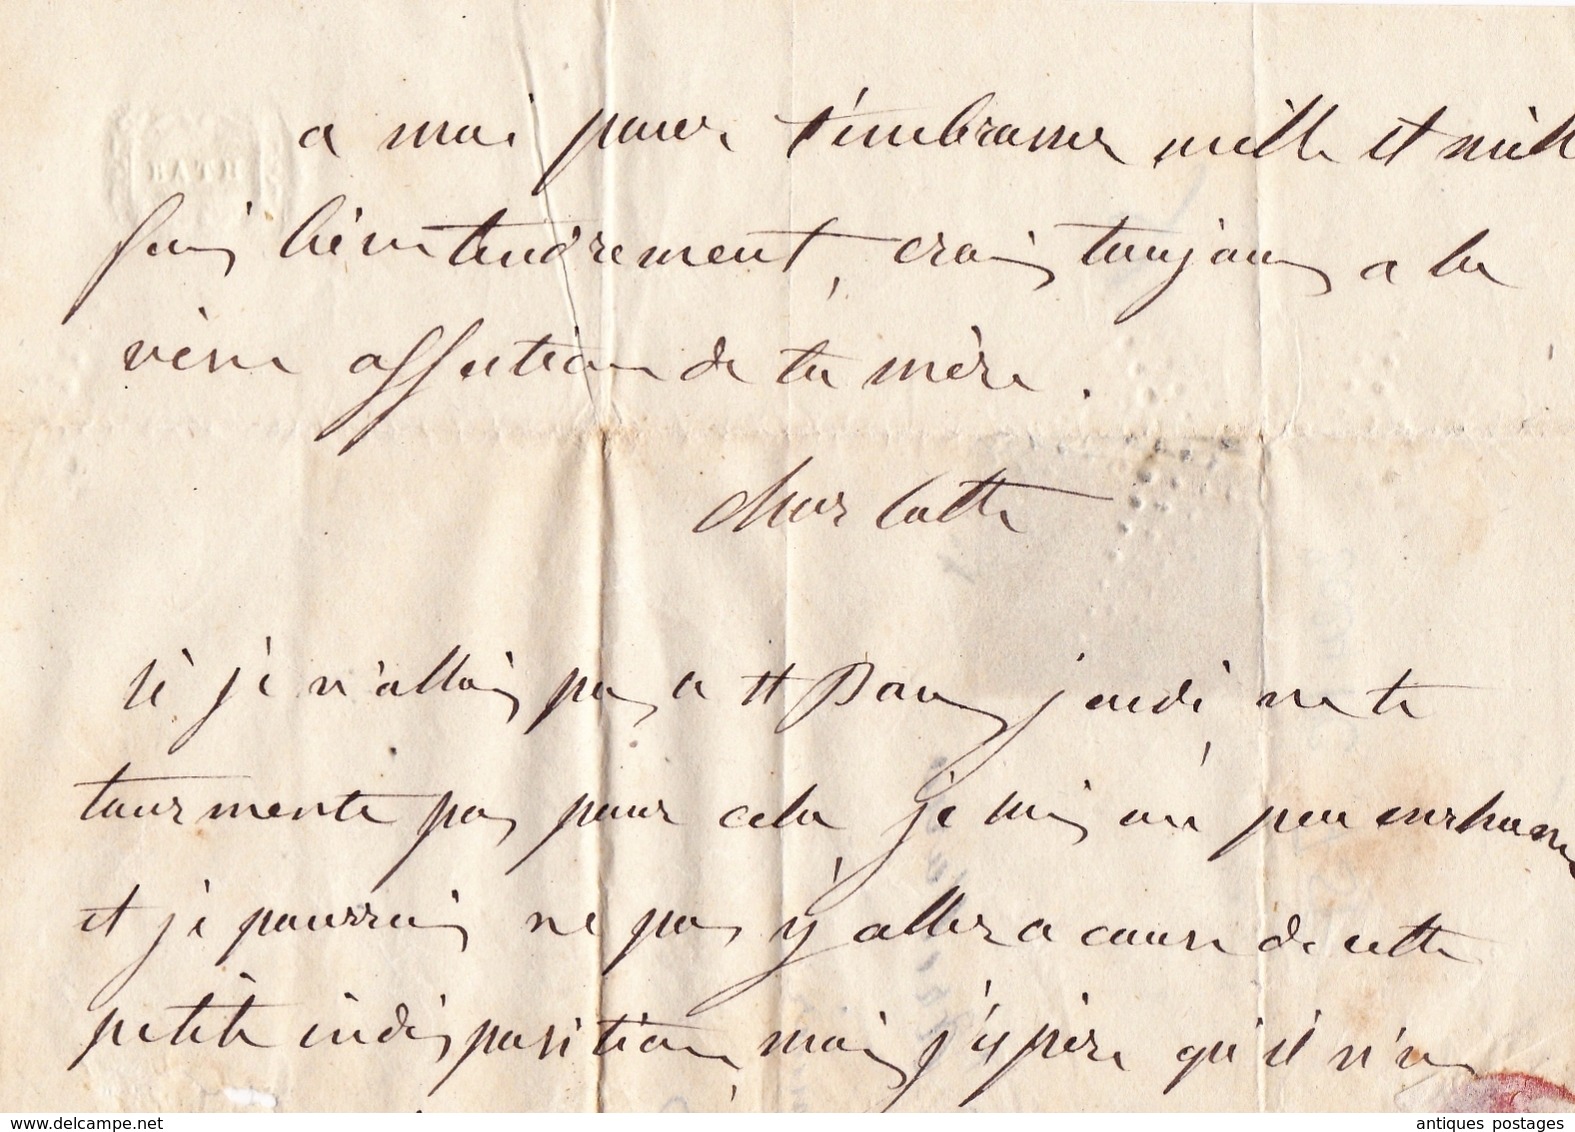 BATH
a moi pour t'embrasser mille et mille
fois bien tendrement, crois toujours a la
vive affection de ta mère.
Charlotte
si je n'allais pas a St Pons jeudi, ne te
tourmente pas pour cela, je suis un peu enrhumé
et je pourrais ne pas y aller a cause de cette
petite indisposition, mais j'espère qu'il n'en
delcampe.net
antiques postages